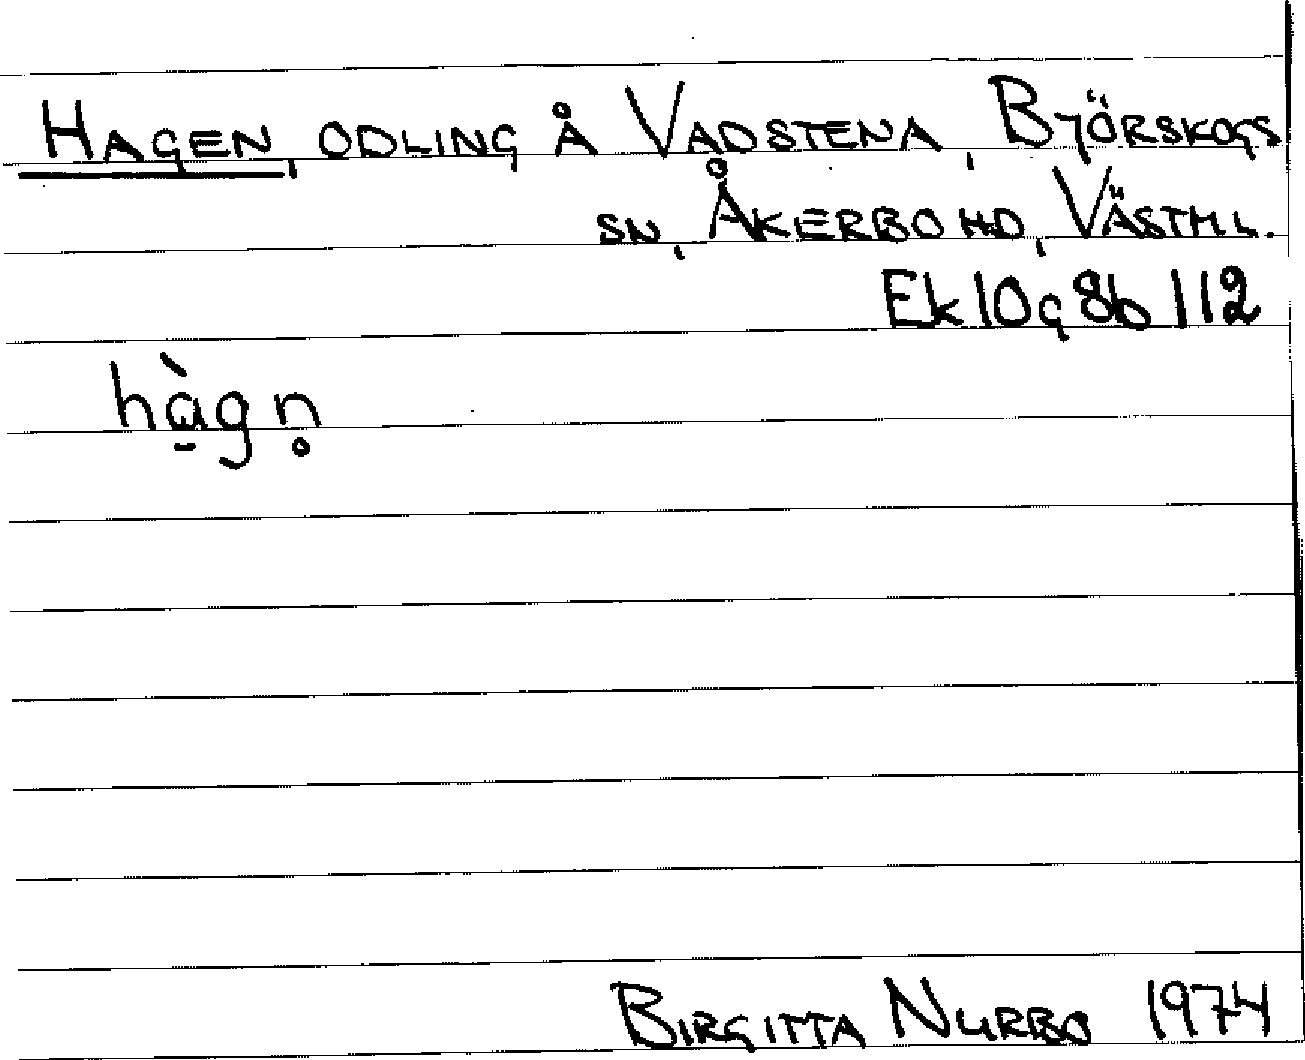 HAGEN, ODLING Å VADSTENA, BJÖRSKOGS
SN, ÅKERBO HD, VÄSTML.
Ek 10g 8b 112
hà̱gn̥
BIRGITTA NURBO 1974